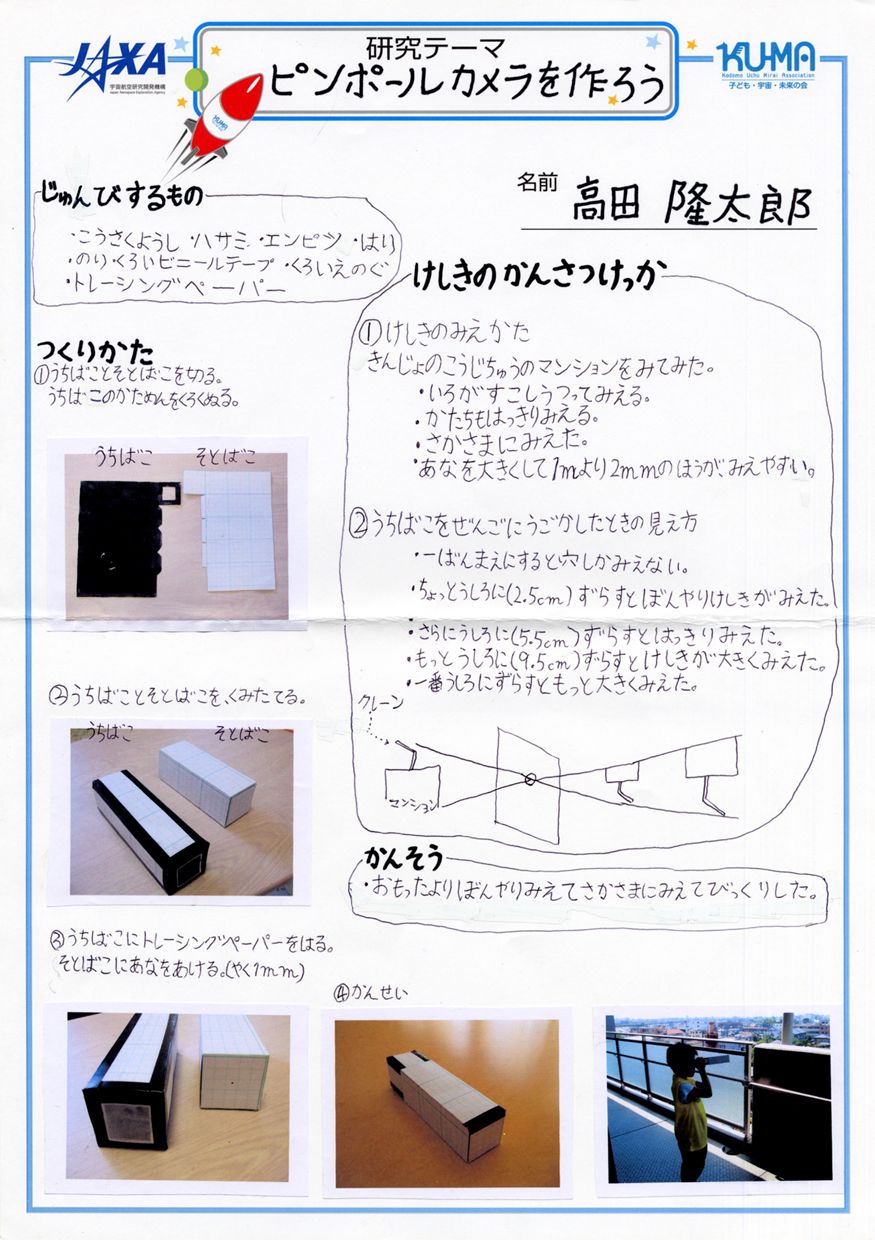 JAXA
宇宙航空研究開発機構
Japan Aerospace Exploration Agency
研究テーマ
ピンホールカメラを作ろう
KUMA
Kodomo Uchu Mirai Association
子ども・宇宙・未来の会
KUMA
名前 高田 隆太郎
じゅんびするもの
・こうさくようし ・ハサミ ・エンピツ ・はり
・のり・くろいビニールテープ ・くろいえのぐ
・トレーシングペーパー
つくりかた
①うちばことそとばこを切る。
うちばこのかためんをくろくぬる。
うちばこ そとばこ
②うちばことそとばこを、くみたてる。
うちばこ そとばこ
③うちばこにトレーシングペーパーをはる。
そとばこにあなをあける。(やく1mm)
④かんせい
けしきのかんさつけっか
①けしきのみえかた
きんじょのこうじちゅうのマンションをみてみた。
・いろがすこしうつってみえる。
・かたちもはっきりみえる。
・さかさまにみえた。
・あなを大きくして1mより2mmのほうが、みえやすい。
②うちばこをぜんごにうごかしたときの見え方
・一ばんまえにすると穴しかみえない。
・ちょっとうしろに(2.5cm)ずらすとぼんやりけしきがみえた。
・さらにうしろに(5.5cm)ずらすとはっきりみえた。
・もっとうしろに(9.5cm)ずらすとけしきが大きくみえた。
・一番うしろにずらすともっと大きくみえた。
クレーン
マンション
かんそう
・おもったよりぼんやりみえてさかさまにみえてびっくりした。